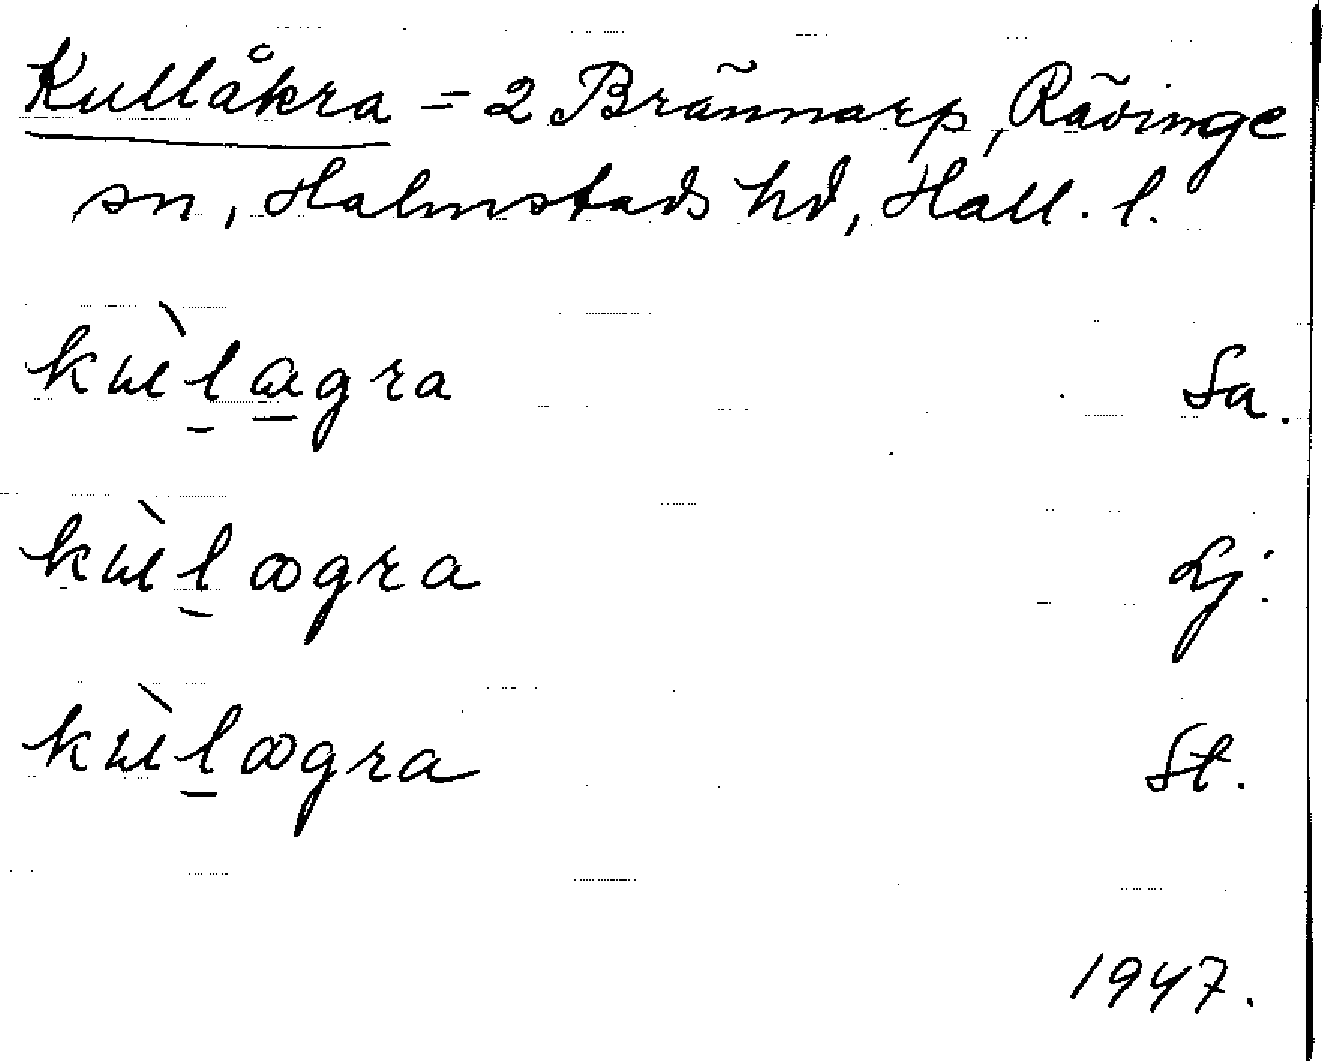 Kullåkra = 2 Brännarp, Rävinge
sn, Halmstads hd, Hall. l.
kɯ̀l̲a̲gra Sa.
kɯ̀l̲ꝏgra Lj.
kɯ̀l̲ꝏgra St.
1947.